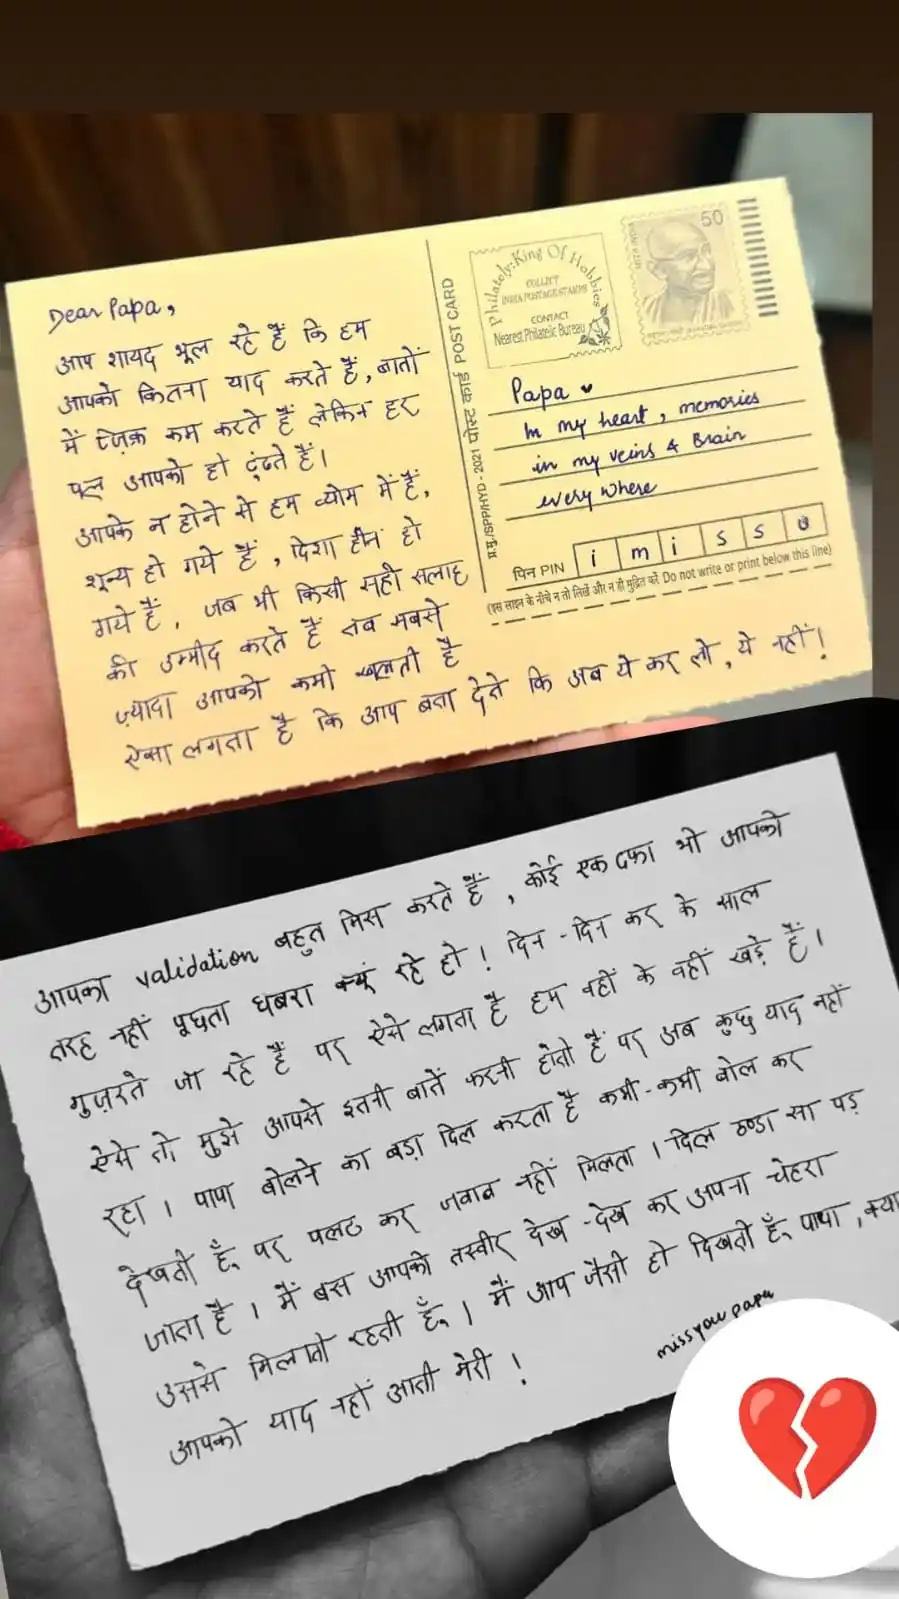 Dear Papa,
आप शायद भूल रहे हैं कि हम
आपको कितना याद करते हैं, बातों
में ज़िक्र कम करते हैं लेकिन हर
पल आपको ही ढूंढते हैं।
आपके न होने से हम व्योम में हैं,
शून्य हो गये हैं, दिशा हीन हो
गये हैं, जब भी किसी सही सलाह
की उम्मीद करते हैं तब सबसे
ज़्यादा आपकी कमी खलती है
ऐसा लगता है कि आप बता देते कि अब ये कर लो, ये नहीं!
प्र.मु./SPP/HYD - 2021 पोस्ट कार्ड POST CARD
Philately: King Of Hobbies
COLLECT
INDIA POSTAGE STAMPS
CONTACT
Nearest Philatelic Bureau
50
Papa
In my heart, memories
in my veins & Brain
every where
पिन PIN i m i s s u
(इस लाइन के नीचे न तो लिखें और न ही मुद्रित करें Do not write or print below this line)
आपका validation बहुत मिस करते हैं, कोई एक दफा भी आपकी
तरह नहीं पूछता घबरा क्यूं रहे हो! दिन-दिन कर के साल
गुज़रते जा रहे हैं पर ऐसे लगता है हम वहीं के वहीं खड़े हैं।
ऐसे तो मुझे आपसे इतनी बातें करनी होती हैं पर अब कुछ याद नहीं
रहा। पापा बोलने का बड़ा दिल करता है कभी-कभी बोल कर
देखती हूँ पर पलट कर जवाब नहीं मिलता। दिल ठण्डा सा पड़
जाता है। मैं बस आपकी तस्वीर देख-देख कर अपना चेहरा
उससे मिलाती रहती हूँ। मैं आप जैसी ही दिखती हूँ पापा, क्या
आपको याद नहीं आती मेरी!
miss you papa